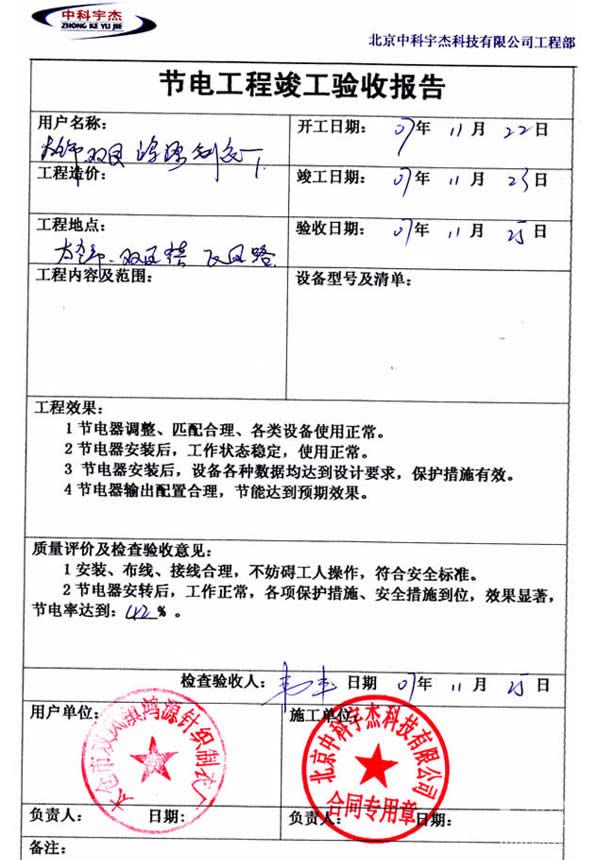 中科宇杰
ZHONG KE YU JIE
北京中科宇杰科技有限公司工程部
节电工程竣工验收报告
用户名称：
开工日期： 07年 11月 22日
工程造价：
竣工日期： 07年 11月 23日
工程地点：
验收日期： 07年 11月 25日
工程内容及范围：
设备型号及清单：
工程效果：
1 节电器调整、匹配合理、各类设备使用正常。
2 节电器安装后，工作状态稳定，使用正常。
3 节电器安装后，设备各种数据均达到设计要求，保护措施有效。
4 节电器输出配置合理，节能达到预期效果。
质量评价及检查验收意见：
1 安装、布线、接线合理，不妨碍工人操作，符合安全标准。
2 节电器安转后，工作正常，各项保护措施、安全措施到位，效果显著，
节电率达到：42％。
检查验收人： 日期 07年 11月 25日
用户单位：
施工单位：
太仓市双凤镇鸿源针织制衣厂
北京中科宇杰科技有限公司
合同专用章
负责人： 日期：
负责人： 日期：
备注：